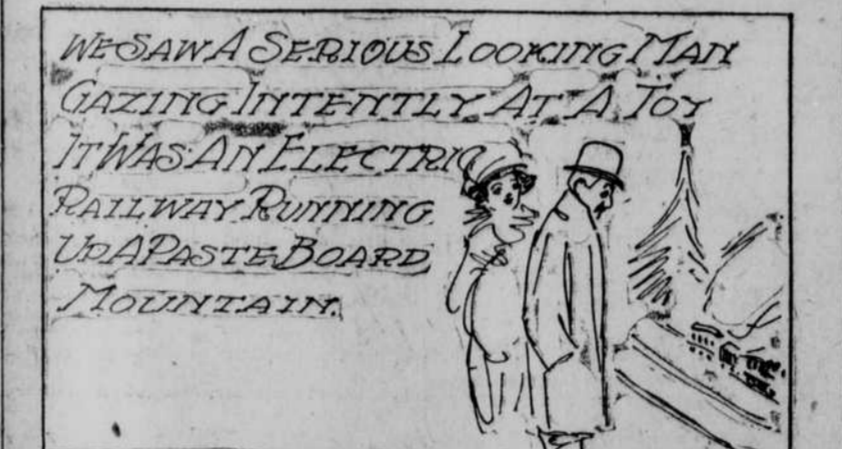 WE SAW A SERIOUS LOOKING MAN
GAZING INTENTLY AT A TOY
IT WAS AN ELECTRIC
RAILWAY RUNNING
UP A PASTE BOARD
MOUNTAIN.